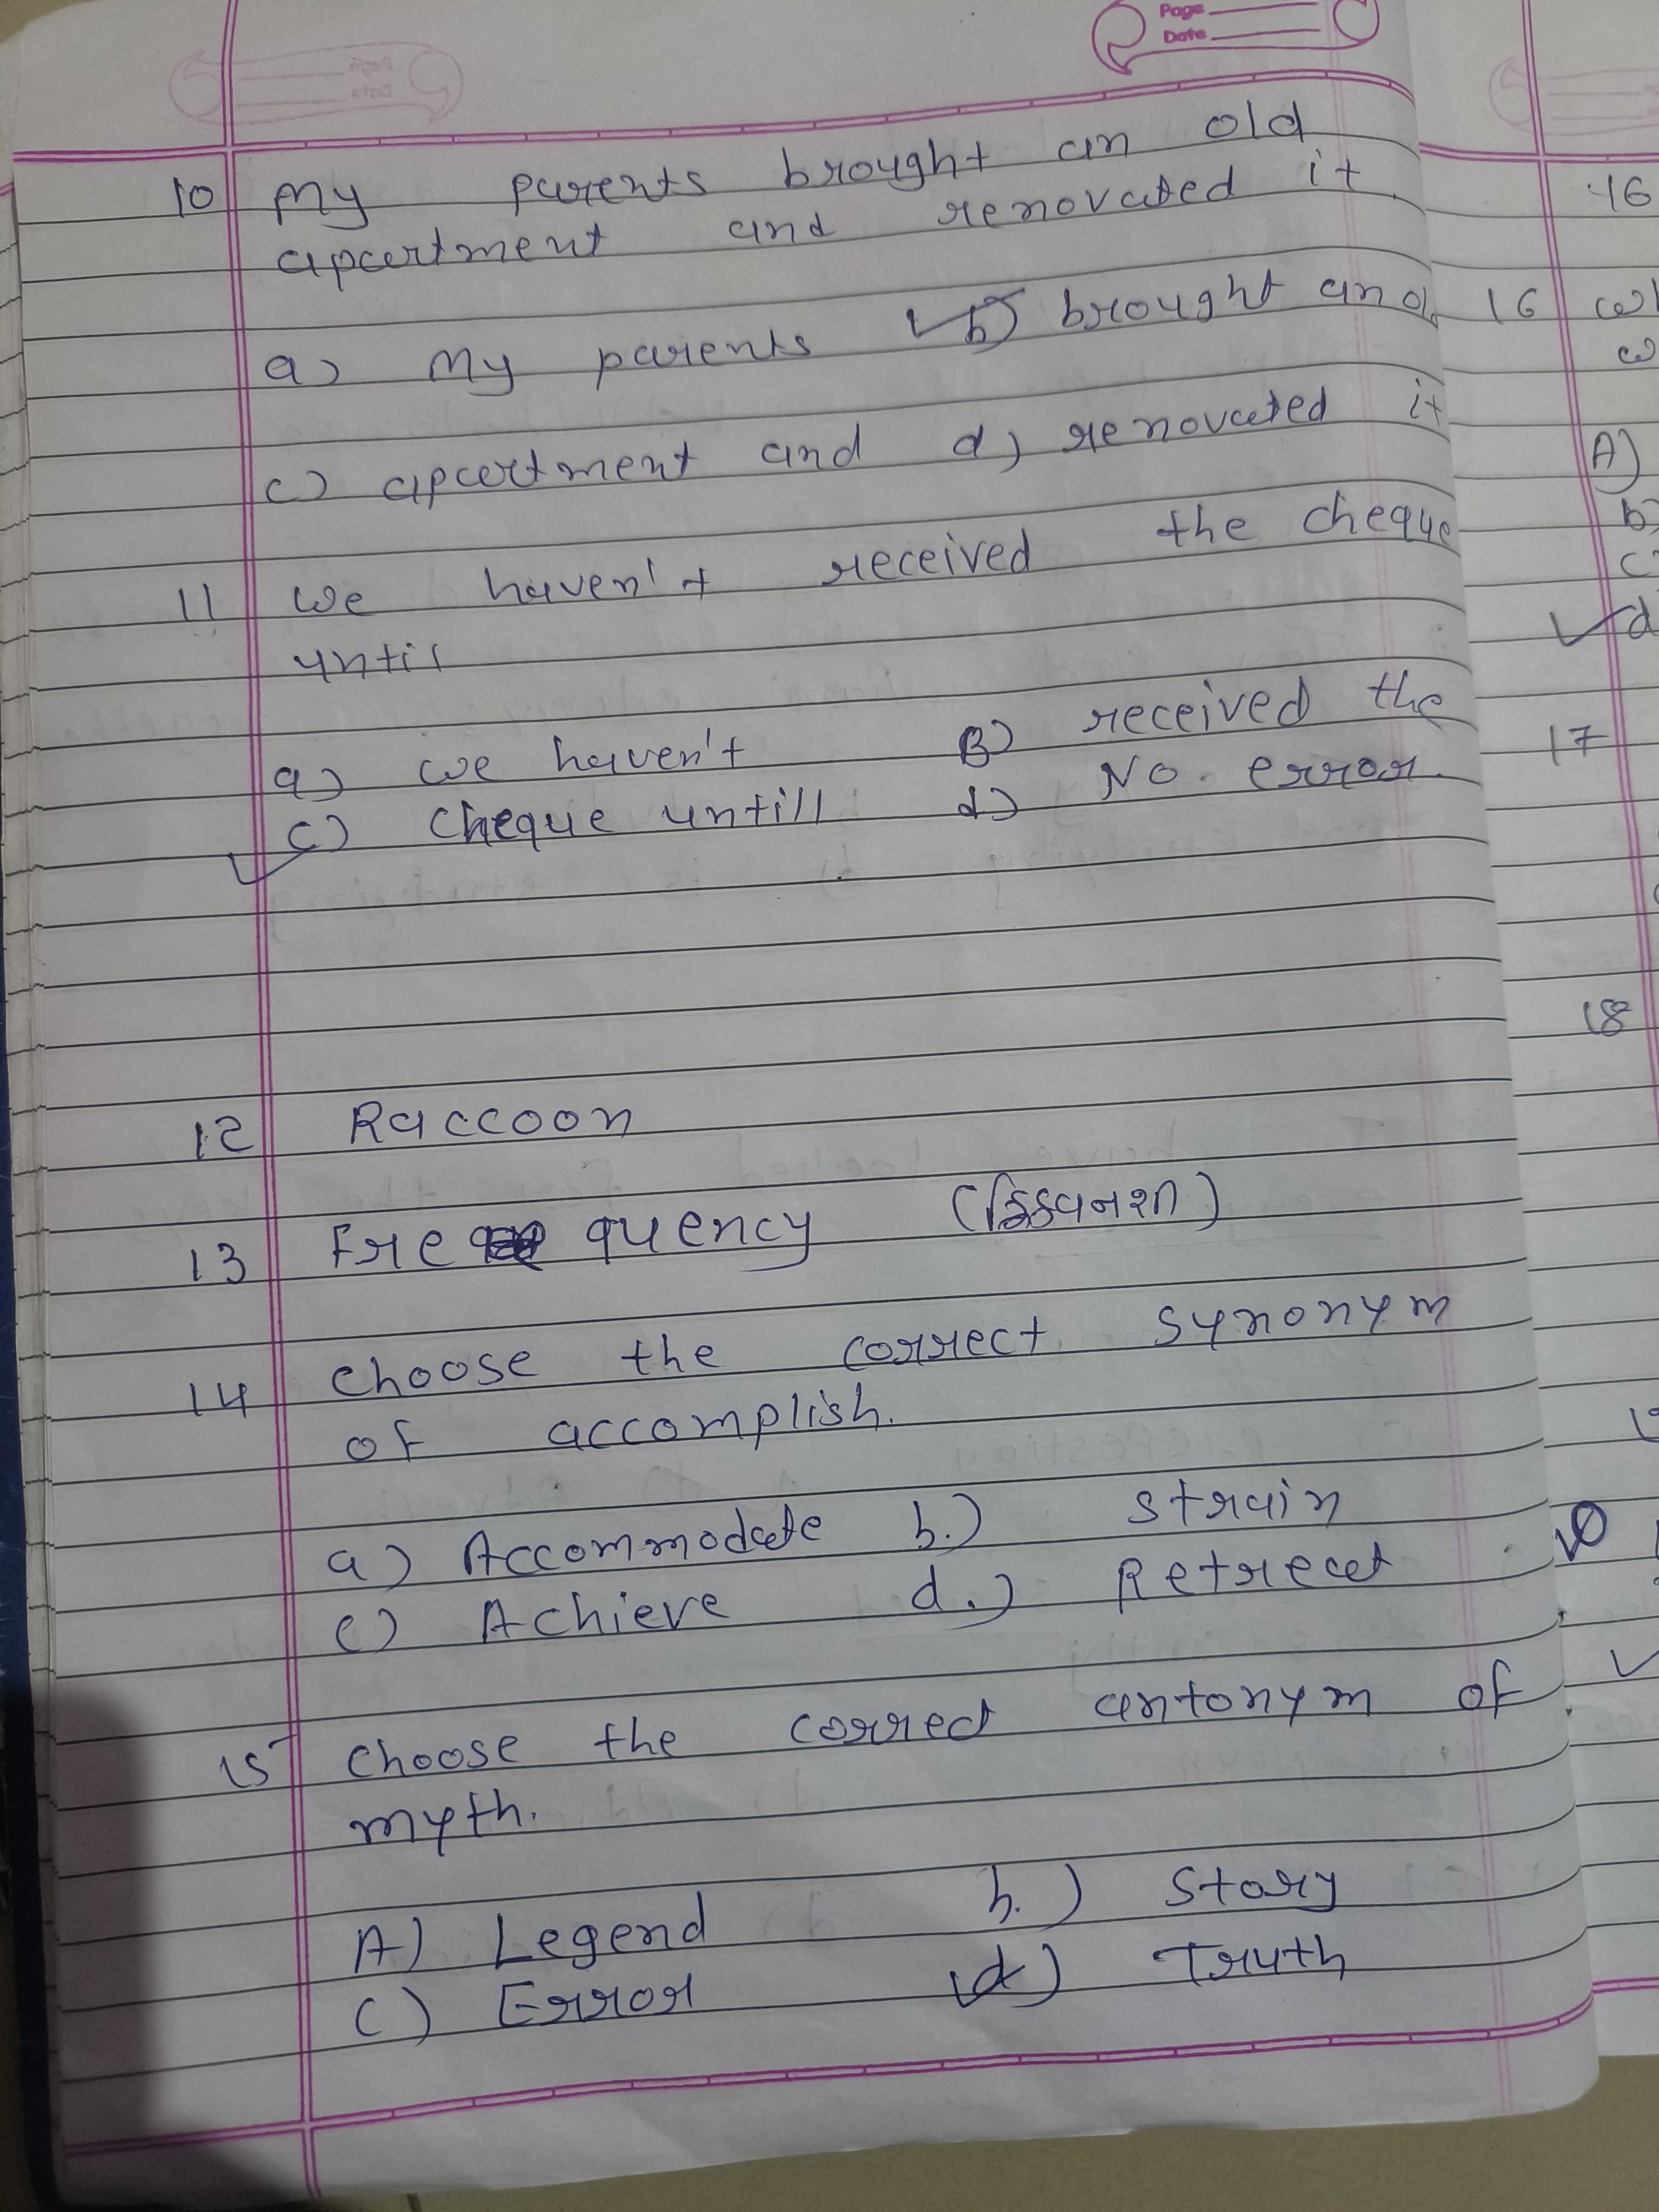 Page
Date
10 My parents brought an old
apartment and renovated it
a) My parents b) brought an o
c) apartment and d) renovated it
11 we haven't received the cheque
until
a) we haven't B) received the
c) cheque untill d) No. error.
12 Raccoon
13 Fre quency
14 choose the correct synonym
of accomplish.
a) Accommodate b.) strain
c) Achieve d.) Retreat
15 choose the correct antonym of
myth.
A) Legend b.) story
c) Error d) Truth
16
16
A)
b)
c
d
17
18